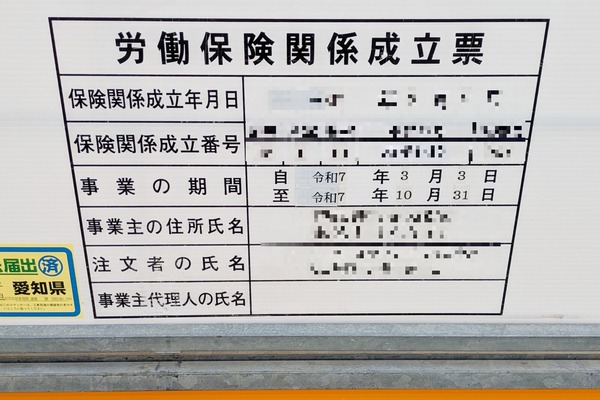 労働保険関係成立票
保険関係成立年月日
保険関係成立番号
事業の期間
自 令和7 年 3 月 3 日
至 令和7 年 10 月 31 日
事業主の住所氏名
注文者の氏名
事業主代理人の氏名
届出済
愛知県